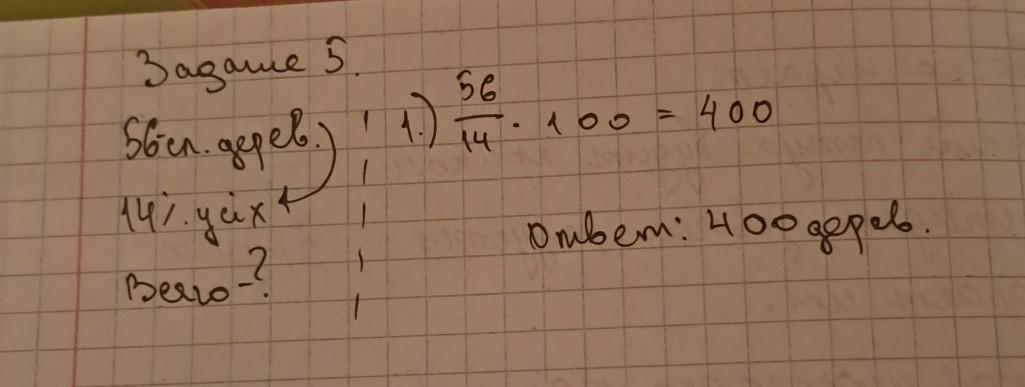 Задание 5.
56-сп. дерев.
14%. усіх
Всего-?
1.) 56/14 · 100 = 400
Ответ: 400 дерев.